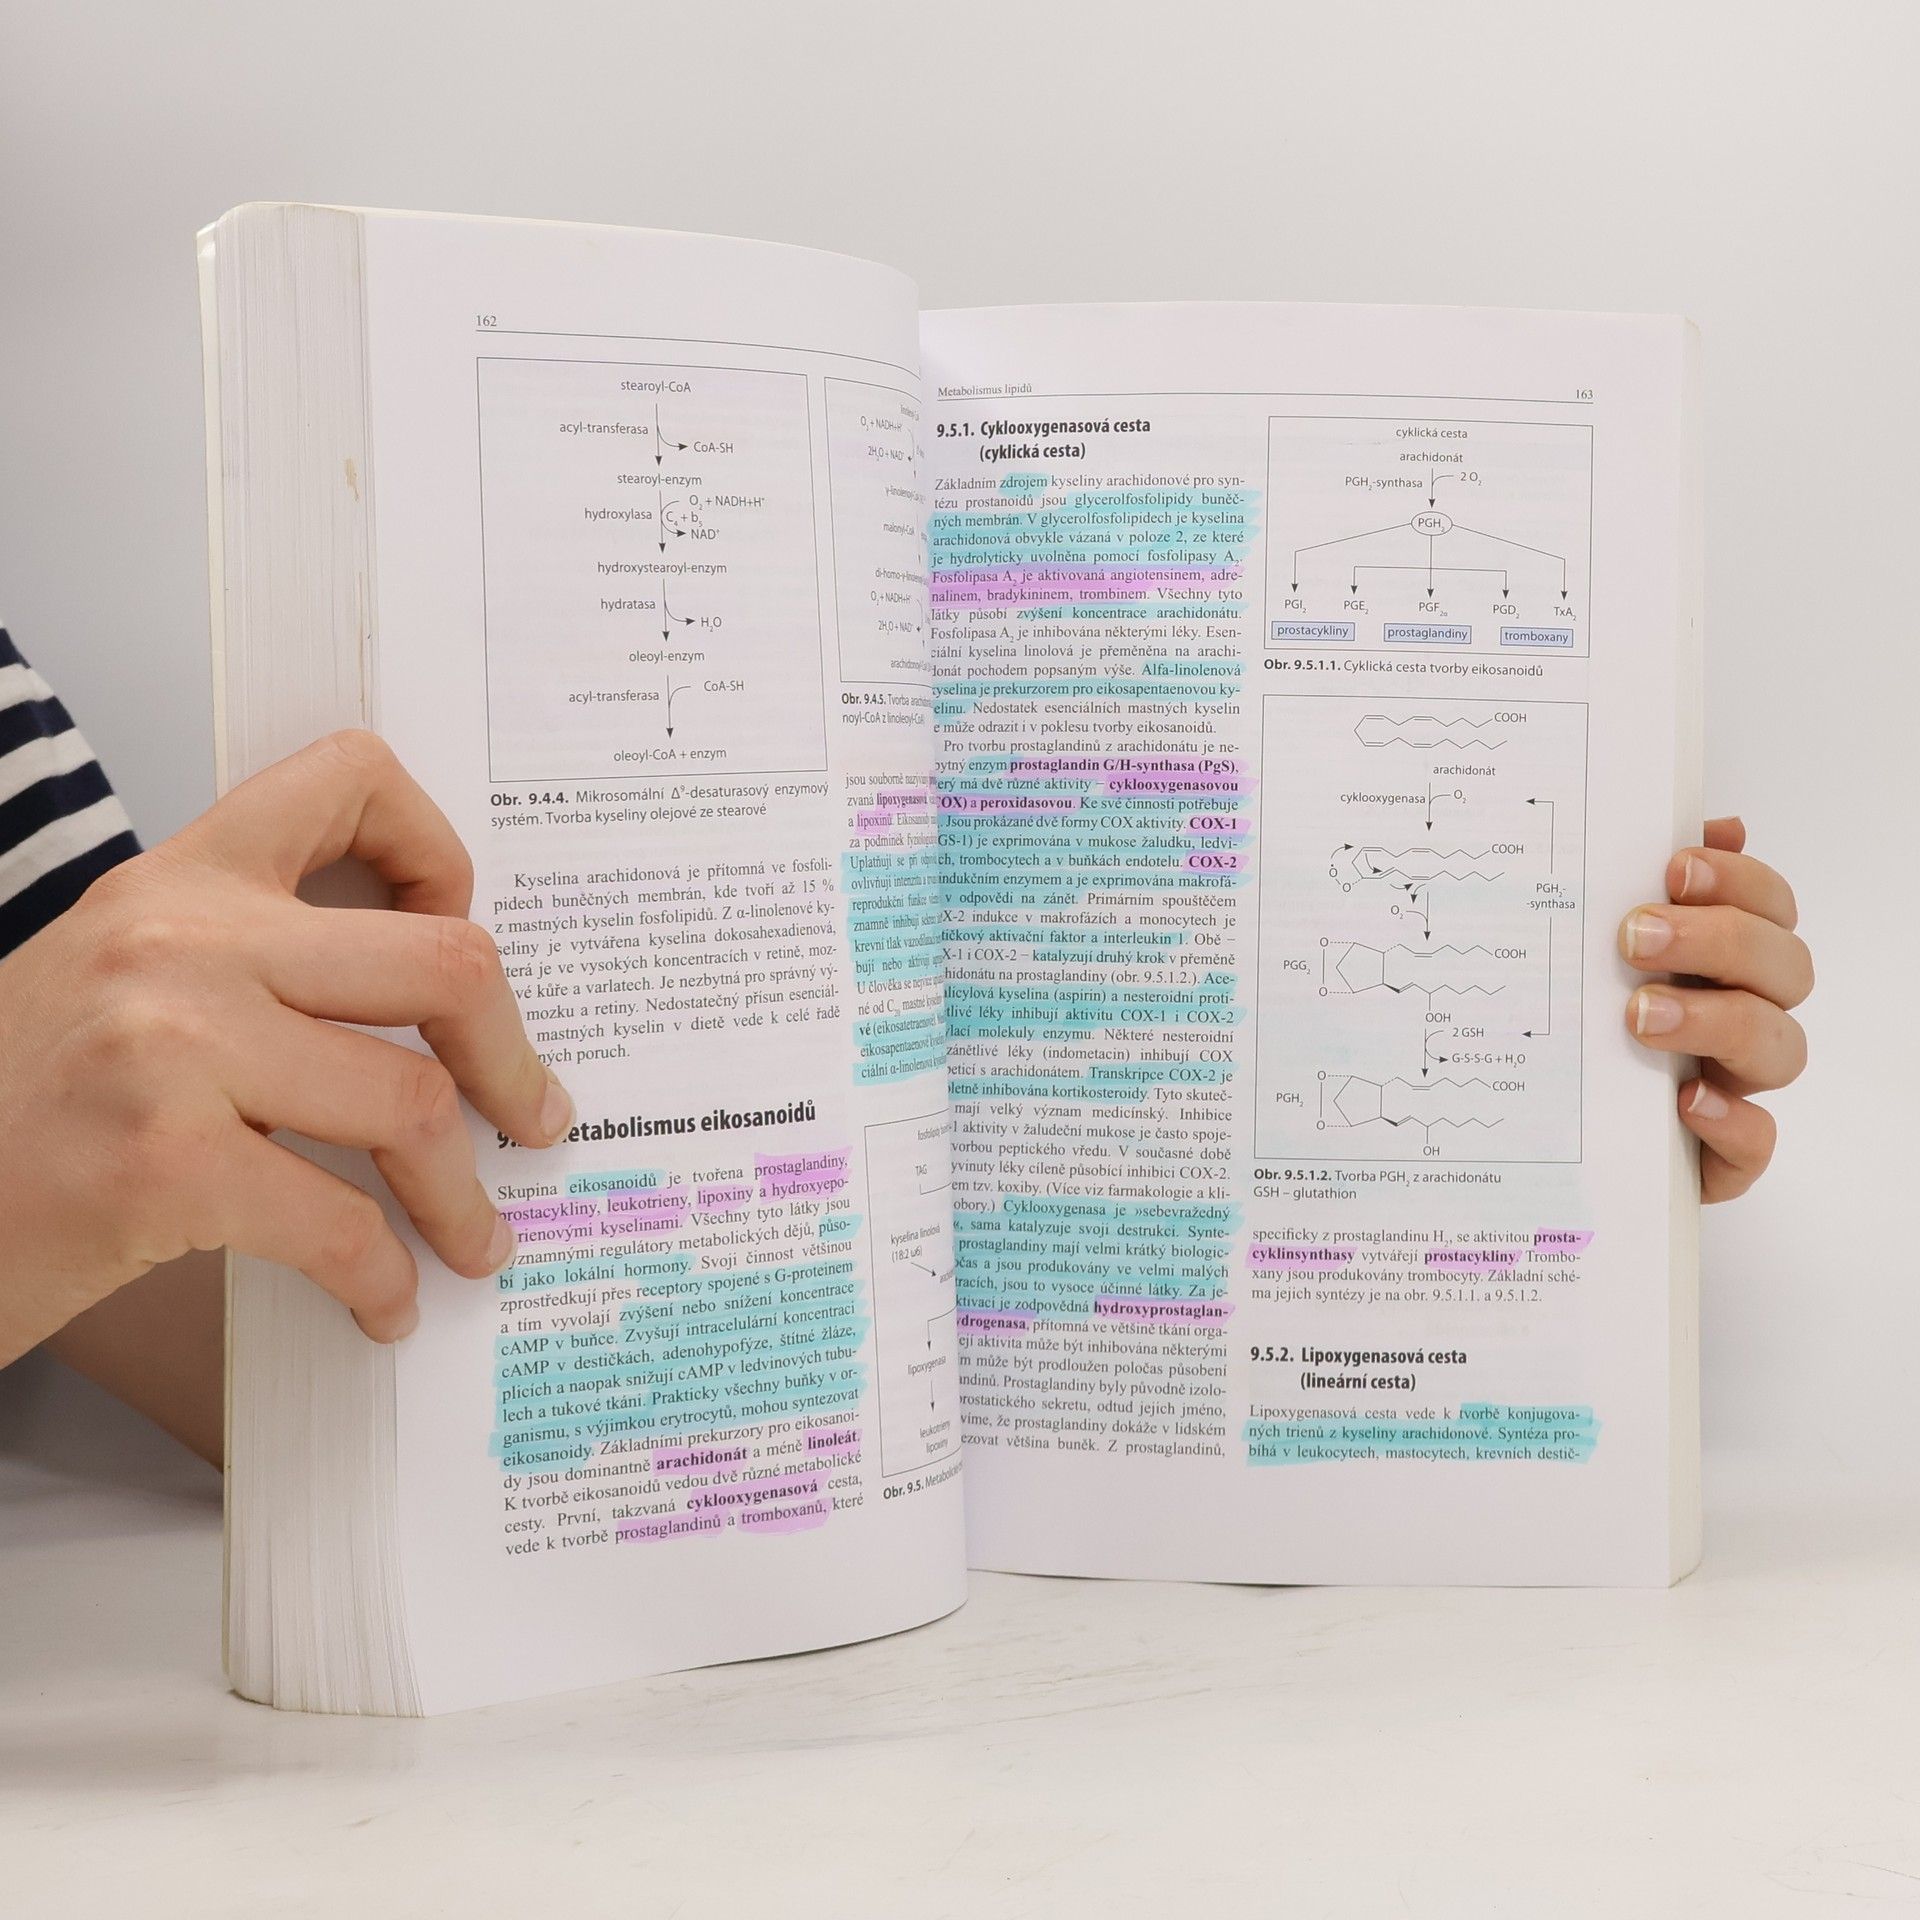 162
stearoyl-CoA
acyl-transferasa
CoA-SH
stearoyl-enzym
O₂ + NADH+H⁺
hydroxylasa
C₄ + b₅
NAD⁺
hydroxystearoyl-enzym
hydratasa
H₂O
oleoyl-enzym
CoA-SH
acyl-transferasa
oleoyl-CoA + enzym
Obr. 9.4.4. Mikrosomální Δ⁹-desaturasový enzymový
systém. Tvorba kyseliny olejové ze stearové
Kyselina arachidonová je přítomná ve fosfoli-
pidech buněčných membrán, kde tvoří až 15 %
z mastných kyselin fosfolipidů. Z α-linolenové ky-
seliny je vytvářena kyselina dokosahexadienová,
která je ve vysokých koncentracích v retině, moz-
vé kůře a varlatech. Je nezbytná pro správný vý-
mozku a retiny. Nedostatečný přísun esenciál-
mastných kyselin v dietě vede k celé řadě
ných poruch.
etabolismus eikosanoidů
Skupina eikosanoidů je tvořena prostaglandiny,
prostacykliny, leukotrieny, lipoxiny a hydroxyepo-
trienovými kyselinami. Všechny tyto látky jsou
významnými regulátory metabolických dějů, půso-
bí jako lokální hormony. Svoji činnost většinou
zprostředkují přes receptory spojené s G-proteinem
a tím vyvolají zvýšení nebo snížení koncentrace
cAMP v buňce. Zvyšují intracelulární koncentraci
cAMP v destičkách, adenohypofýze, štítné žláze,
plicích a naopak snižují cAMP v ledvinových tubu-
lech a tukové tkáni. Prakticky všechny buňky v or-
ganismu, s výjimkou erytrocytů, mohou syntezovat
eikosanoidy. Základními prekurzory pro eikosanoi-
dy jsou dominantně arachidonát a méně linoleát.
K tvorbě eikosanoidů vedou dvě různé metabolické
cesty. První, takzvaná cyklooxygenasová cesta,
vede k tvorbě prostaglandinů a tromboxanů, které
O₂ + NADH+H⁺
2H₂O + NAD⁺
malonyl-CoA
O₂ + NADH+H⁺
2H₂O + NAD⁺
Obr. 9.4.5. Tvorba
noyl-CoA z linoleoyl-CoA
jsou souborně
zvaná lipoxygenasová
a lipoxinů. Eikosanoidy
za podmínek
Uplatňují se při
ovlivňují intenzitu
reprodukční funkce
znamně inhibují
krevní tlak
bují nebo aktivují
U člověka se
né od C₂₀ mastné
vé (eikosatetraenové)
eikosapentaenové
ciální α-linolenová
TAG
kyselina linolová
(18:2 ω6)
lipoxygenasa
leukotrieny
lipoxiny
Obr. 9.5.
Metabolismus lipidů
163
9.5.1. Cyklooxygenasová cesta
(cyklická cesta)
Základním zdrojem kyseliny arachidonové pro syn-
tézu prostanoidů jsou glycerolfosfolipidy buněč-
ných membrán. V glycerolfosfolipidech je kyselina
arachidonová obvykle vázaná v poloze 2, ze které
je hydrolyticky uvolněna pomocí fosfolipasy A₂.
Fosfolipasa A₂ je aktivovaná angiotensinem, adre-
nalinem, bradykininem, trombinem. Všechny tyto
látky působí zvýšení koncentrace arachidonátu.
Fosfolipasa A₂ je inhibována některými léky. Esen-
ciální kyselina linolová je přeměněna na arachi-
donát pochodem popsaným výše. Alfa-linolenová
kyselina je prekurzorem pro eikosapentaenovou ky-
selinu. Nedostatek esenciálních mastných kyselin
e může odrazit i v poklesu tvorby eikosanoidů.
Pro tvorbu prostaglandinů z arachidonátu je ne-
bytný enzym prostaglandin G/H-synthasa (PgS),
erý má dvě různé aktivity – cyklooxygenasovou
OX) a peroxidasovou. Ke své činnosti potřebuje
. Jsou prokázané dvě formy COX aktivity. COX-1
GS-1) je exprimována v mukose žaludku, ledvi-
ch, trombocytech a v buňkách endotelu. COX-2
indukčním enzymem a je exprimována makrofá-
v odpovědi na zánět. Primárním spouštěčem
X-2 indukce v makrofázích a monocytech je
tičkový aktivační faktor a interleukin 1. Obě –
X-1 i COX-2 – katalyzují druhý krok v přeměně
hidonátu na prostaglandiny (obr. 9.5.1.2.). Ace-
licylová kyselina (aspirin) a nesteroidní proti-
tlivé léky inhibují aktivitu COX-1 i COX-2
lací molekuly enzymu. Některé nesteroidní
zánětlivé léky (indometacin) inhibují COX
peticí s arachidonátem. Transkripce COX-2 je
letně inhibována kortikosteroidy. Tyto skuteč-
mají velký význam medicínský. Inhibice
1 aktivity v žaludeční mukose je často spoje-
vorbou peptického vředu. V současné době
yvinuty léky cíleně působící inhibici COX-2.
em tzv. koxiby. (Více viz farmakologie a kli-
obory.) Cyklooxygenasa je »sebevražedný
«, sama katalyzuje svoji destrukci. Synte-
prostaglandiny mají velmi krátký biologic-
čas a jsou produkovány ve velmi malých
tracích, jsou to vysoce účinné látky. Za je-
ktivaci je zodpovědná hydroxyprostaglan-
ydrogenasa, přítomná ve většině tkání orga-
ejí aktivita může být inhibována některými
m může být prodloužen poločas působení
andinů. Prostaglandiny byly původně izolo-
rostatického sekretu, odtud jejich jméno,
víme, že prostaglandiny dokáže v lidském
ezovat většina buněk. Z prostaglandinů,
cyklická cesta
arachidonát
PGH₂-synthasa
2 O₂
PGH₂
PGI₂ PGE₂ PGF₂α PGD₂ TxA₂
prostacykliny prostaglandiny tromboxany
Obr. 9.5.1.1. Cyklická cesta tvorby eikosanoidů
COOH
arachidonát
cyklooxygenasa
O₂
COOH
O
O
PGH₂-
-synthasa
O₂
O
COOH
PGG₂
O
OOH
2 GSH
G-S-S-G + H₂O
O
COOH
PGH₂
O
OH
Obr. 9.5.1.2. Tvorba PGH₂ z arachidonátu
GSH – glutathion
specificky z prostaglandinu H₂, se aktivitou prosta-
cyklinsynthasy vytvářejí prostacykliny. Trombo-
xany jsou produkovány trombocyty. Základní sché-
ma jejich syntézy je na obr. 9.5.1.1. a 9.5.1.2.
9.5.2. Lipoxygenasová cesta
(lineární cesta)
Lipoxygenasová cesta vede k tvorbě konjugova-
ných trienů z kyseliny arachidonové. Syntéza pro-
bíhá v leukocytech, mastocytech, krevních destič-